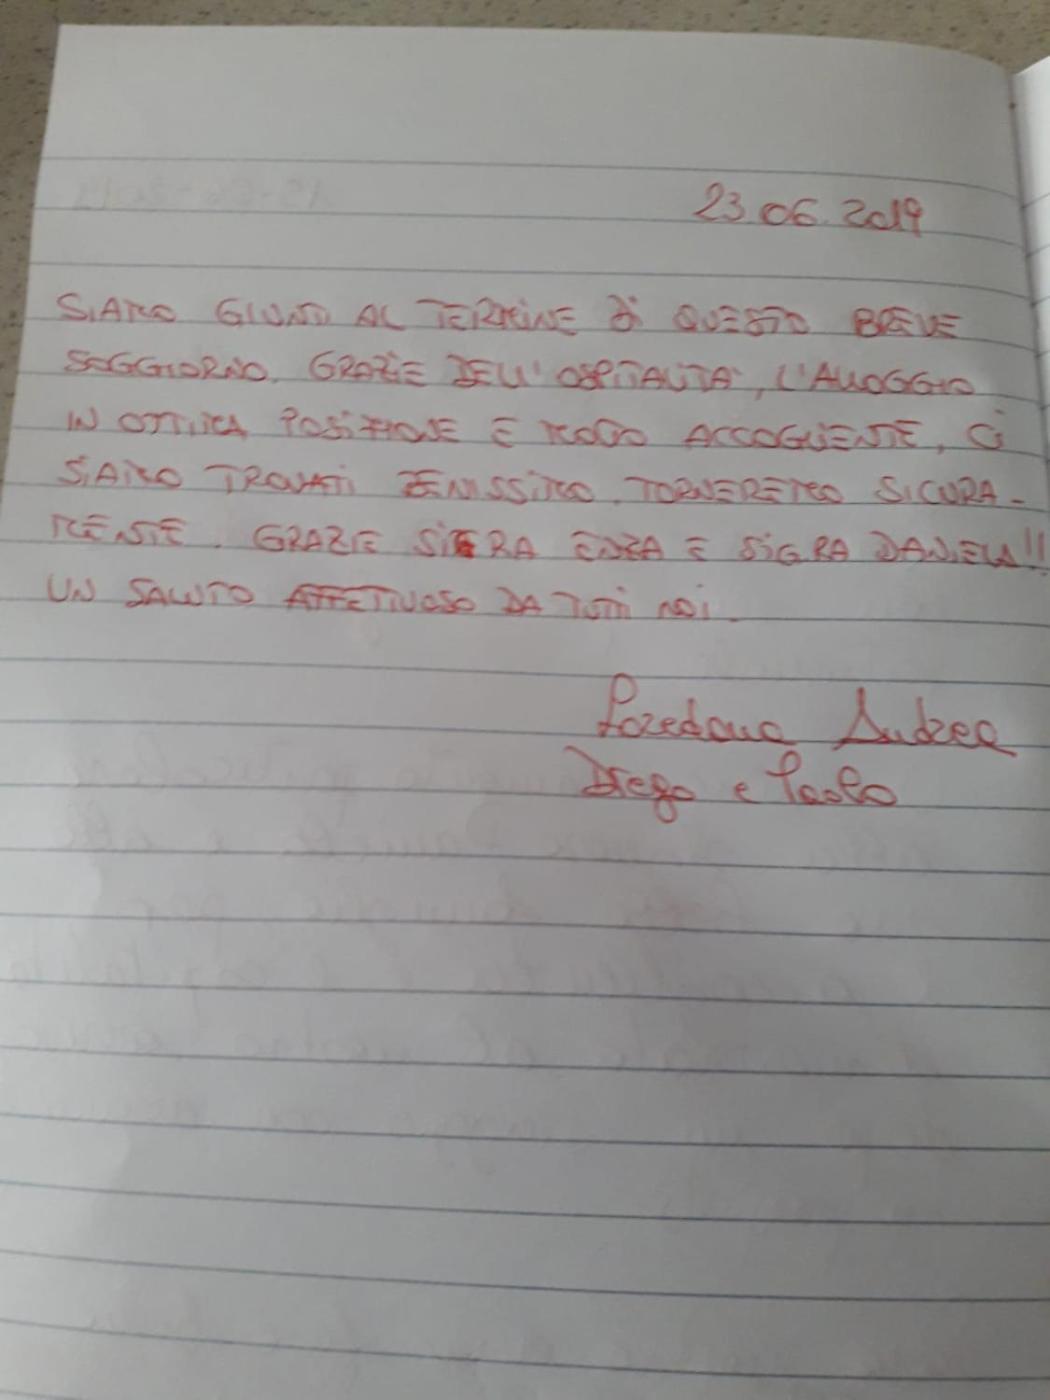 23.06.2019
SIAMO GIUNTI AL TERMINE DI QUESTO BREVE
SOGGIORNO. GRAZIE DELL'OSPITALITA', L'ALLOGGIO
IN OTTIMA POSIZIONE E MOLTO ACCOGLIENTE, CI
SIAMO TROVATI BENISSIMO. TORNEREMO SICURA-
MENTE. GRAZIE SIG.RA ENZA E SIG.RA DANIELA!!
UN SALUTO AFFETTUOSO DA TUTTI NOI.
Loredana Andrea
Diego e Paolo